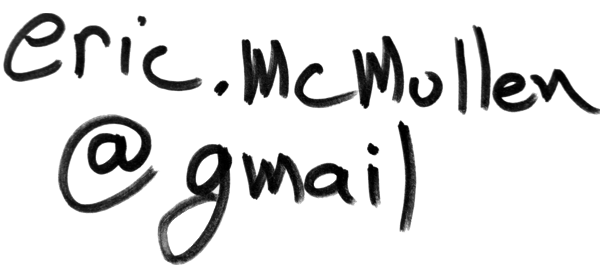 eric.McMollen
@gmail